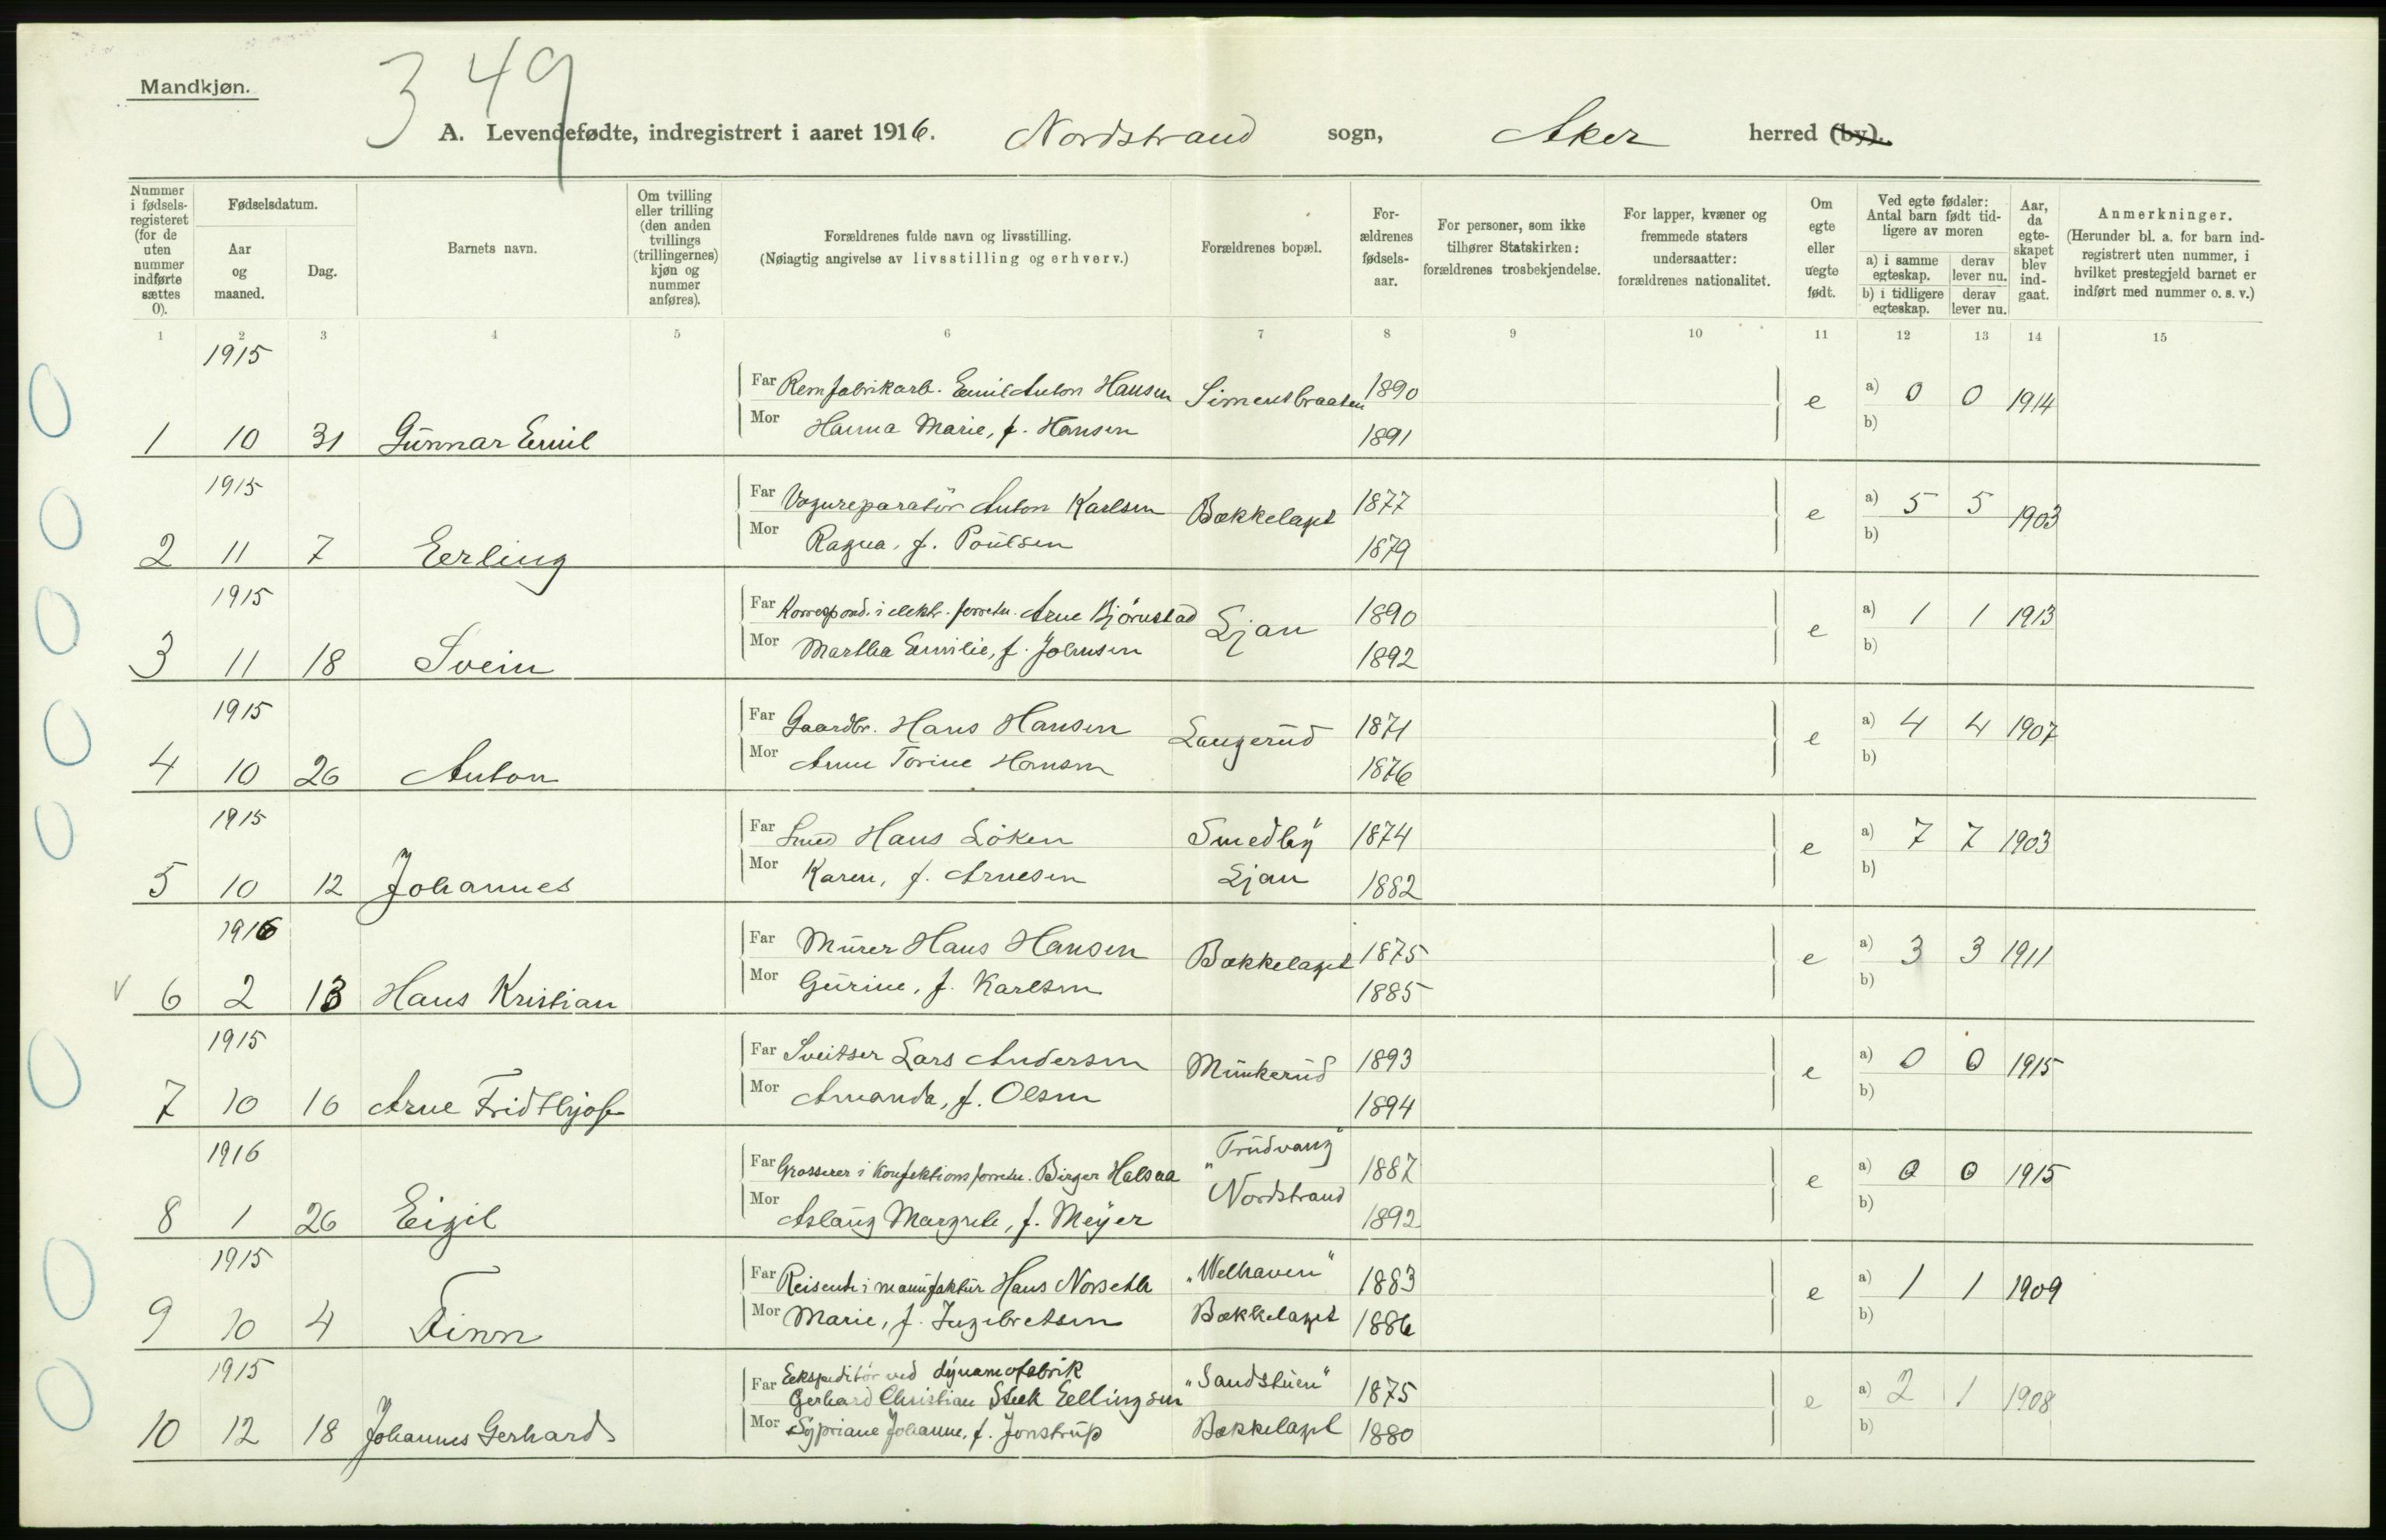 349
Mandkjøn.
A. Levendefødte, indregistrert i aaret 1916. Nordstrand sogn, Aker herred (by).
Nummer i fødselsregisteret (for de uten nummer indførte sættes 0).
Fødselsdatum.
Aar og maaned.
Dag.
Barnets navn.
Om tvilling eller trilling (den anden tvillings (trillingernes) kjøn og nummer anføres).
Forældrenes fulde navn og livsstilling.
(Nøiagtig angivelse av livsstilling og erhverv.)
Forældrenes bopæl.
Forældrenes fødselsaar.
For personer, som ikke tilhører Statskirken: forældrenes trosbekjendelse.
For lapper, kvæner og fremmede staters undersaatter: forældrenes nationalitet.
Om egte eller uegte født.
Ved egte fødsler: Antal barn født tidligere av moren
a) i samme egteskap. derav lever nu.
b) i tidligere egteskap. derav lever nu.
Aar, da egteskapet blev indgaat.
Anmerkninger.
(Herunder bl. a. for barn indregistrert uten nummer, i hvilket prestegjeld barnet er indført med nummer o. s. v.)
1 2 3 4 5 6 7 8 9 10 11 12 13 14 15
1915
Far Remfabrikarb. Emil Anton Hansen Simensbraaten 1890 e a) 0 0 1914
Mor Hanna Marie, f. Hansen 1891 b)
1 10 31 Gunnar Emil
1915
Far Vognreparatör Anton Karlsen Bækkelaget 1877 e a) 5 5 1903
Mor Ragna, f. Poulsen 1879 b)
2 11 7 Erling
1915
Far Korrespond. i elektr. forretn. Arne Björnstad Ljan 1890 e a) 1 1 1913
Mor Martha Emilie, f. Johnsen 1892 b)
3 11 18 Svein
1915
Far Gaardbr. Hans Hansen Langerud 1871 e a) 4 4 1907
Mor Anne Torine Hansen 1876 b)
4 10 26 Anton
1915
Far Smed Hans Löken Smedby 1874 e a) 7 7 1903
Mor Karen, f. Arnesen Ljan 1882 b)
5 10 12 Johannes
1916
Far Murer Hans Hansen Bækkelaget 1875 e a) 3 3 1911
Mor Gurine, f. Karlsen 1885 b)
6 2 13 Hans Kristian
1915
Far Sveitser Lars Andersen Munkerud 1893 e a) 0 0 1915
Mor Amanda, f. Olsen 1894 b)
7 10 16 Arne Fridthjof
1916
Far Grosserer i Konfektionsforretn. Birger Halsaa "Trudvang" 1887 e a) 0 0 1915
Mor Aslaug Margrete, f. Meyer Nordstrand 1892 b)
8 1 26 Eigil
1915
Far Reisende i manufaktur Hans Norseth "Welhaven" 1883 e a) 1 1 1909
Mor Marie, f. Ingebretsen Bækkelaget 1886 b)
9 10 4 Finn
1915
Far Ekspeditör ved dynamofabrik
Gerhard Christian Steek Ellingsen "Sandstuen" 1875 e a) 2 1 1908
Mor Sypriane Johanne, f. Jonstrup Bækkelaget 1880 b)
10 12 18 Johannes Gerhard